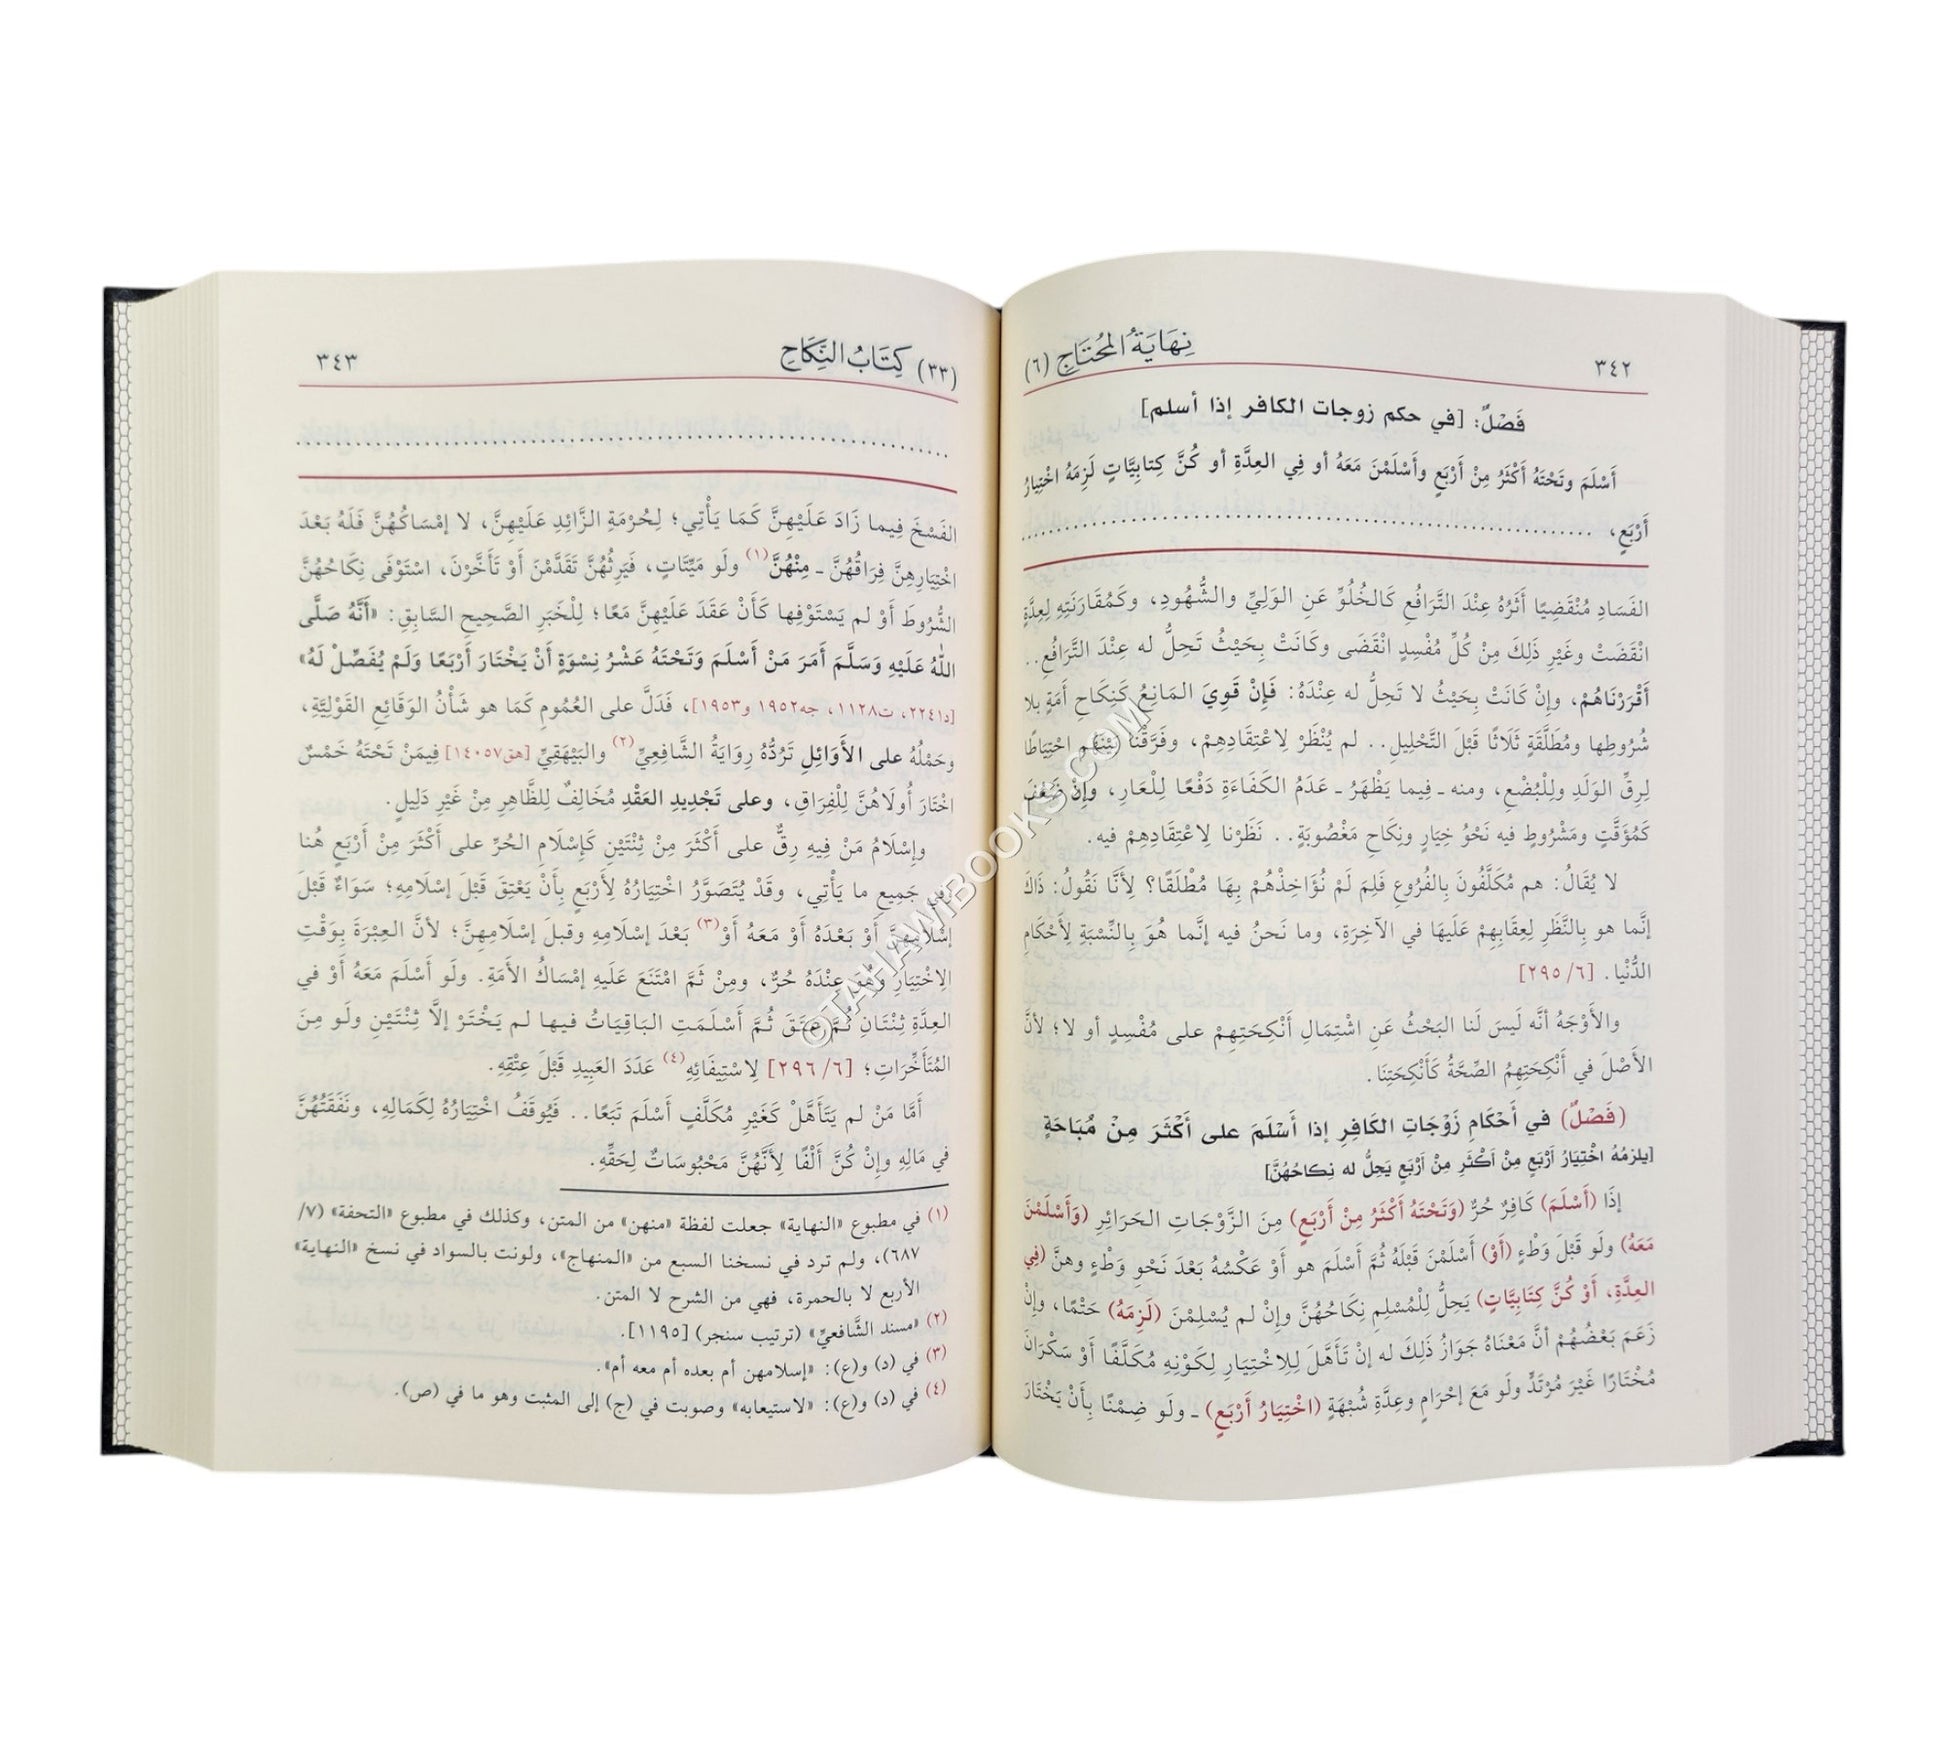 ٣٤٢
نِهَايَةُ المُحْتَاجِ (٦)
فَصْلٌ: [في حكم زوجات الكافر إذا أسلم]
أَسْلَمَ وتَحْتَهُ أَكْثَرُ مِنْ أَرْبَعٍ وأَسْلَمْنَ مَعَهُ أو فِي العِدَّةِ أو كُنَّ كِتابِيَّاتٍ لَزِمَهُ اخْتِيَارُ
أَرْبَعٍ، ........................................
الفَسَادِ مُنْقَضِيًا أَثَرُهُ عِنْدَ التَّرَافُعِ كَالخُلُوِّ عَنِ الوَلِيِّ والشُّهُودِ، وكَمُقَارَنَتِهِ لِعِدَّةٍ
انْقَضَتْ وغَيْرِ ذَلِكَ مِنْ كُلِّ مُفْسِدٍ انْقَضَى وكَانَتْ بِحَيْثُ تَحِلُّ له عِنْدَ التَّرَافُعِ..
أَقْرَرْنَاهُمْ، وإنْ كَانَتْ بِحَيْثُ لا تَحِلُّ له عِنْدَهُ: فَإِنْ قَوِيَ المَانِعُ كَنِكَاحِ أَمَةٍ بلا
شُرُوطِها ومُطَلَّقَةٍ ثَلاثًا قَبْلَ التَّحْلِيلِ.. لم يُنْظَرْ لِاعْتِقَادِهِمْ، وفَرَّقْنَا بَيْنَهُم احْتِيَاطًا
لِرِقِّ الوَلَدِ ولِلْبُضْعِ، ومنه ـ فِيما يَظْهَرُ ـ عَدَمُ الكَفَاءَةِ دَفْعًا لِلْعَارِ، وإنْ ضَعُفَ
كَمُؤَقَّتٍ ومَشْرُوطٍ فيه نَحْوُ خِيَارٍ ونِكَاحِ مَغْصُوبَةٍ.. نَظَرْنا لِاعْتِقَادِهِمْ فيه.
لا يُقَالُ: هم مُكَلَّفُونَ بِالفُرُوعِ فَلِمَ لَمْ نُؤَاخِذْهُمْ بِهَا مُطْلَقًا؟ لِأَنَّا نَقُولُ: ذَاكَ
إنَّما هو بِالنَّظَرِ لِعِقَابِهِمْ عَلَيهَا في الآخِرَةِ، وما نَحنُ فيه إنَّما هُوَ بِالنِّسْبَةِ لِأَحْكَامِ
الدُّنْيا. [٦/ ٢٩٥]
والأَوْجَهُ أنَّه لَيسَ لَنا البَحْثُ عَنِ اشْتِمَالِ أَنْكِحَتِهِمْ على مُفْسِدٍ أو لا؛ لأنَّ
الأَصْلَ في أَنْكِحَتِهِمُ الصِّحَّةُ كَأَنْكِحَتِنَا.
(فَصْلٌ) في أَحْكَامِ زَوْجَاتِ الكَافِرِ إذا أَسْلَمَ على أَكْثَرَ مِنْ مُبَاحَةٍ
[يلزمُهُ اخْتِيَارُ أَرْبَعٍ مِنْ أَكْثَرِ مِنْ أَرْبَعٍ يَحِلُّ له نِكاحُهُنَّ]
إذَا (أَسْلَمَ) كَافِرٌ حُرٌّ (وَتَحْتَهُ أَكْثَرُ مِنْ أَرْبَعٍ) مِنَ الزَّوْجَاتِ الحَرَائِرِ (وَأَسْلَمْنَ
مَعَهُ) ولَو قَبْلَ وَطْءٍ (أَوْ) أَسْلَمْنَ قَبْلَهُ ثُمَّ أَسْلَمَ هو أَوْ عَكْسُهُ بَعْدَ نَحْوِ وَطْءٍ وهنَّ (فِي
العِدَّةِ، أَوْ كُنَّ كِتَابِيَّاتٍ) يَحِلُّ لِلْمُسْلِمِ نِكَاحُهُنَّ وإنْ لم يُسْلِمْنَ (لَزِمَهُ) حَتْمًا، وإنْ
زَعَمَ بَعْضُهُمْ أنَّ مَعْنَاهُ جَوَازُ ذَلِكَ له إنْ تَأَهَّلَ لِلِاخْتِيَارِ لِكَوْنِهِ مُكَلَّفًا أَوْ سَكْرَانَ
مُخْتَارًا غَيْرَ مُرْتَدٍّ ولَو مَعَ إحْرَامٍ وعِدَّةِ شُبْهَةٍ (اخْتِيَارُ أَرْبَعٍ) ـ ولَو ضِمْنًا بِأَنْ يَخْتَارَ
(٣٣) كِتَابُ النِّكَاحِ
٣٤٣
........................................
الفَسْخَ فِيما زَادَ عَلَيْهِنَّ كَمَا يَأْتِي؛ لِحُرْمَةِ الزَّائِدِ عَلَيْهِنَّ، لا إمْسَاكُهُنَّ فَلَهُ بَعْدَ
اخْتِيَارِهِنَّ فِرَاقُهُنَّ ـ مِنْهُنَّ(١) ولَو مَيِّتَاتٍ، فَيَرِثُهُنَّ تَقَدَّمْنَ أَوْ تَأَخَّرْنَ، اسْتَوْفَى نِكَاحُهُنَّ
الشُّرُوطَ أَوْ لم يَسْتَوْفِها كَأَنْ عَقَدَ عَلَيْهِنَّ مَعًا؛ لِلْخَبَرِ الصَّحِيحِ السَّابِقِ: «أَنَّهُ صَلَّى
اللهُ عَلَيْهِ وَسَلَّمَ أَمَرَ مَنْ أَسْلَمَ وَتَحْتَهُ عَشْرُ نِسْوَةٍ أَنْ يَخْتَارَ أَرْبَعًا وَلَمْ يُفَصِّلْ لَهُ»
[د٢٢٤١، ت١١٢٨، جه١٩٥٢ و١٩٥٣]، فَدَلَّ على العُمُومِ كَمَا هو شَأْنُ الوَقَائِعِ القَوْلِيَّةِ،
وحَمْلُهُ على الأَوَائِلِ تَرُدُّهُ رِوَايَةُ الشَّافِعِيِّ(٢) والبَيْهَقِيِّ [هق١٤٠٥٧] فِيمَنْ تَحْتَهُ خَمْسٌ
اخْتَارَ أُولَاهُنَّ لِلْفِرَاقِ، وعلى تَجْدِيدِ العَقْدِ مُخَالِفٌ لِلظَّاهِرِ مِنْ غَيْرِ دَلِيلٍ.
وإسْلَامُ مَنْ فِيهِ رِقٌّ على أَكْثَرَ مِنْ ثِنْتَيْنِ كَإِسْلَامِ الحُرِّ على أَكْثَرَ مِنْ أَرْبَعٍ هُنا
وفي جَمِيعِ ما يَأْتِي، وقَدْ يُتَصَوَّرُ اخْتِيَارُهُ لِأَرْبَعٍ بِأَنْ يَعْتِقَ قَبْلَ إسْلَامِهِ؛ سَوَاءٌ قَبْلَ
إسْلَامِهِنَّ أَوْ بَعْدَهُ أَوْ مَعَهُ أَوْ(٣) بَعْدَ إسْلَامِهِ وقبلَ إسْلَامِهِنَّ؛ لأنَّ العِبْرَةَ بِوَقْتِ
الِاخْتِيَارِ وهُوَ عِنْدَهُ حُرٌّ، ومِنْ ثَمَّ امْتَنَعَ عَلَيهِ إمْسَاكُ الأَمَةِ. ولَو أَسْلَمَ مَعَهُ أَوْ في
العِدَّةِ ثِنْتَانِ ثُمَّ عَتَقَ ثُمَّ أَسْلَمَتِ البَاقِيَاتُ فيها لم يَخْتَرْ إلَّا ثِنْتَيْنِ ولَو مِنَ
المُتَأَخِّرَاتِ؛ [٦/ ٢٩٦] لِاسْتِيفَائِهِ(٤) عَدَدَ العَبِيدِ قَبْلَ عِتْقِهِ.
أَمَّا مَنْ لم يَتَأَهَّلْ كَغَيْرِ مُكَلَّفٍ أَسْلَمَ تَبَعًا.. فَيُوقَفُ اخْتِيَارُهُ لِكَمَالِهِ، ونَفَقَتُهُنَّ
في مَالِهِ وإنْ كُنَّ أَلْفًا لِأَنَّهُنَّ مَحْبُوسَاتٌ لِحَقِّهِ.
(١) في مطبوع «النهاية» جعلت لفظة «منهن» من المتن، وكذلك في مطبوع «التحفة» (٧/
٦٨٧)، ولم ترد في نسخنا السبع من «المنهاج»، ولونت بالسواد في نسخ «النهاية»
الأربع لا بالحمرة، فهي من الشرح لا المتن.
(٢) «مسند الشَّافعيِّ» (ترتيب سنجر) [١١٩٥].
(٣) في (د) و(ع): «إسلامهن أم بعده أم معه أم».
(٤) في (د) و(ع): «لاستيعابه» وصوبت في (ج) إلى المثبت وهو ما في (ص).
©TAHAWIBOOKS.COM